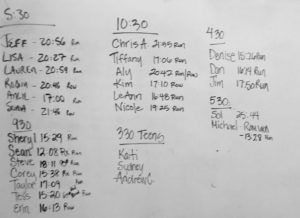 5:30
JEFF - 20:56 Run
LISA - 20:27 Run
LAUREN - 20:59 Run
ROBIN - 20:46 Row
17:00 Run
21:46 Row
930
Sheryl 15:29 Run
Sean 12:08 Rx Run
Steve 18:11 Run
Corey 15:38 Rx Run
Taylor 17:09 Run
Tess 15:20 Run
Erin 16:13 Row
10:30
Chris A 21:55 Run
Tiffany 17:06 Run
Aly 20:42 Run/Row
Kim 17:10 Row
LeAnn 16:48 Run
Nicole 19:25 Run
330 Teens
Kati
Sydney
Andrew
430
Denise 15:26 Run
Dan 16:14 Run
Jim 17:50 Run
530:
Sol 25:44
Michael - Row
13:28 Run